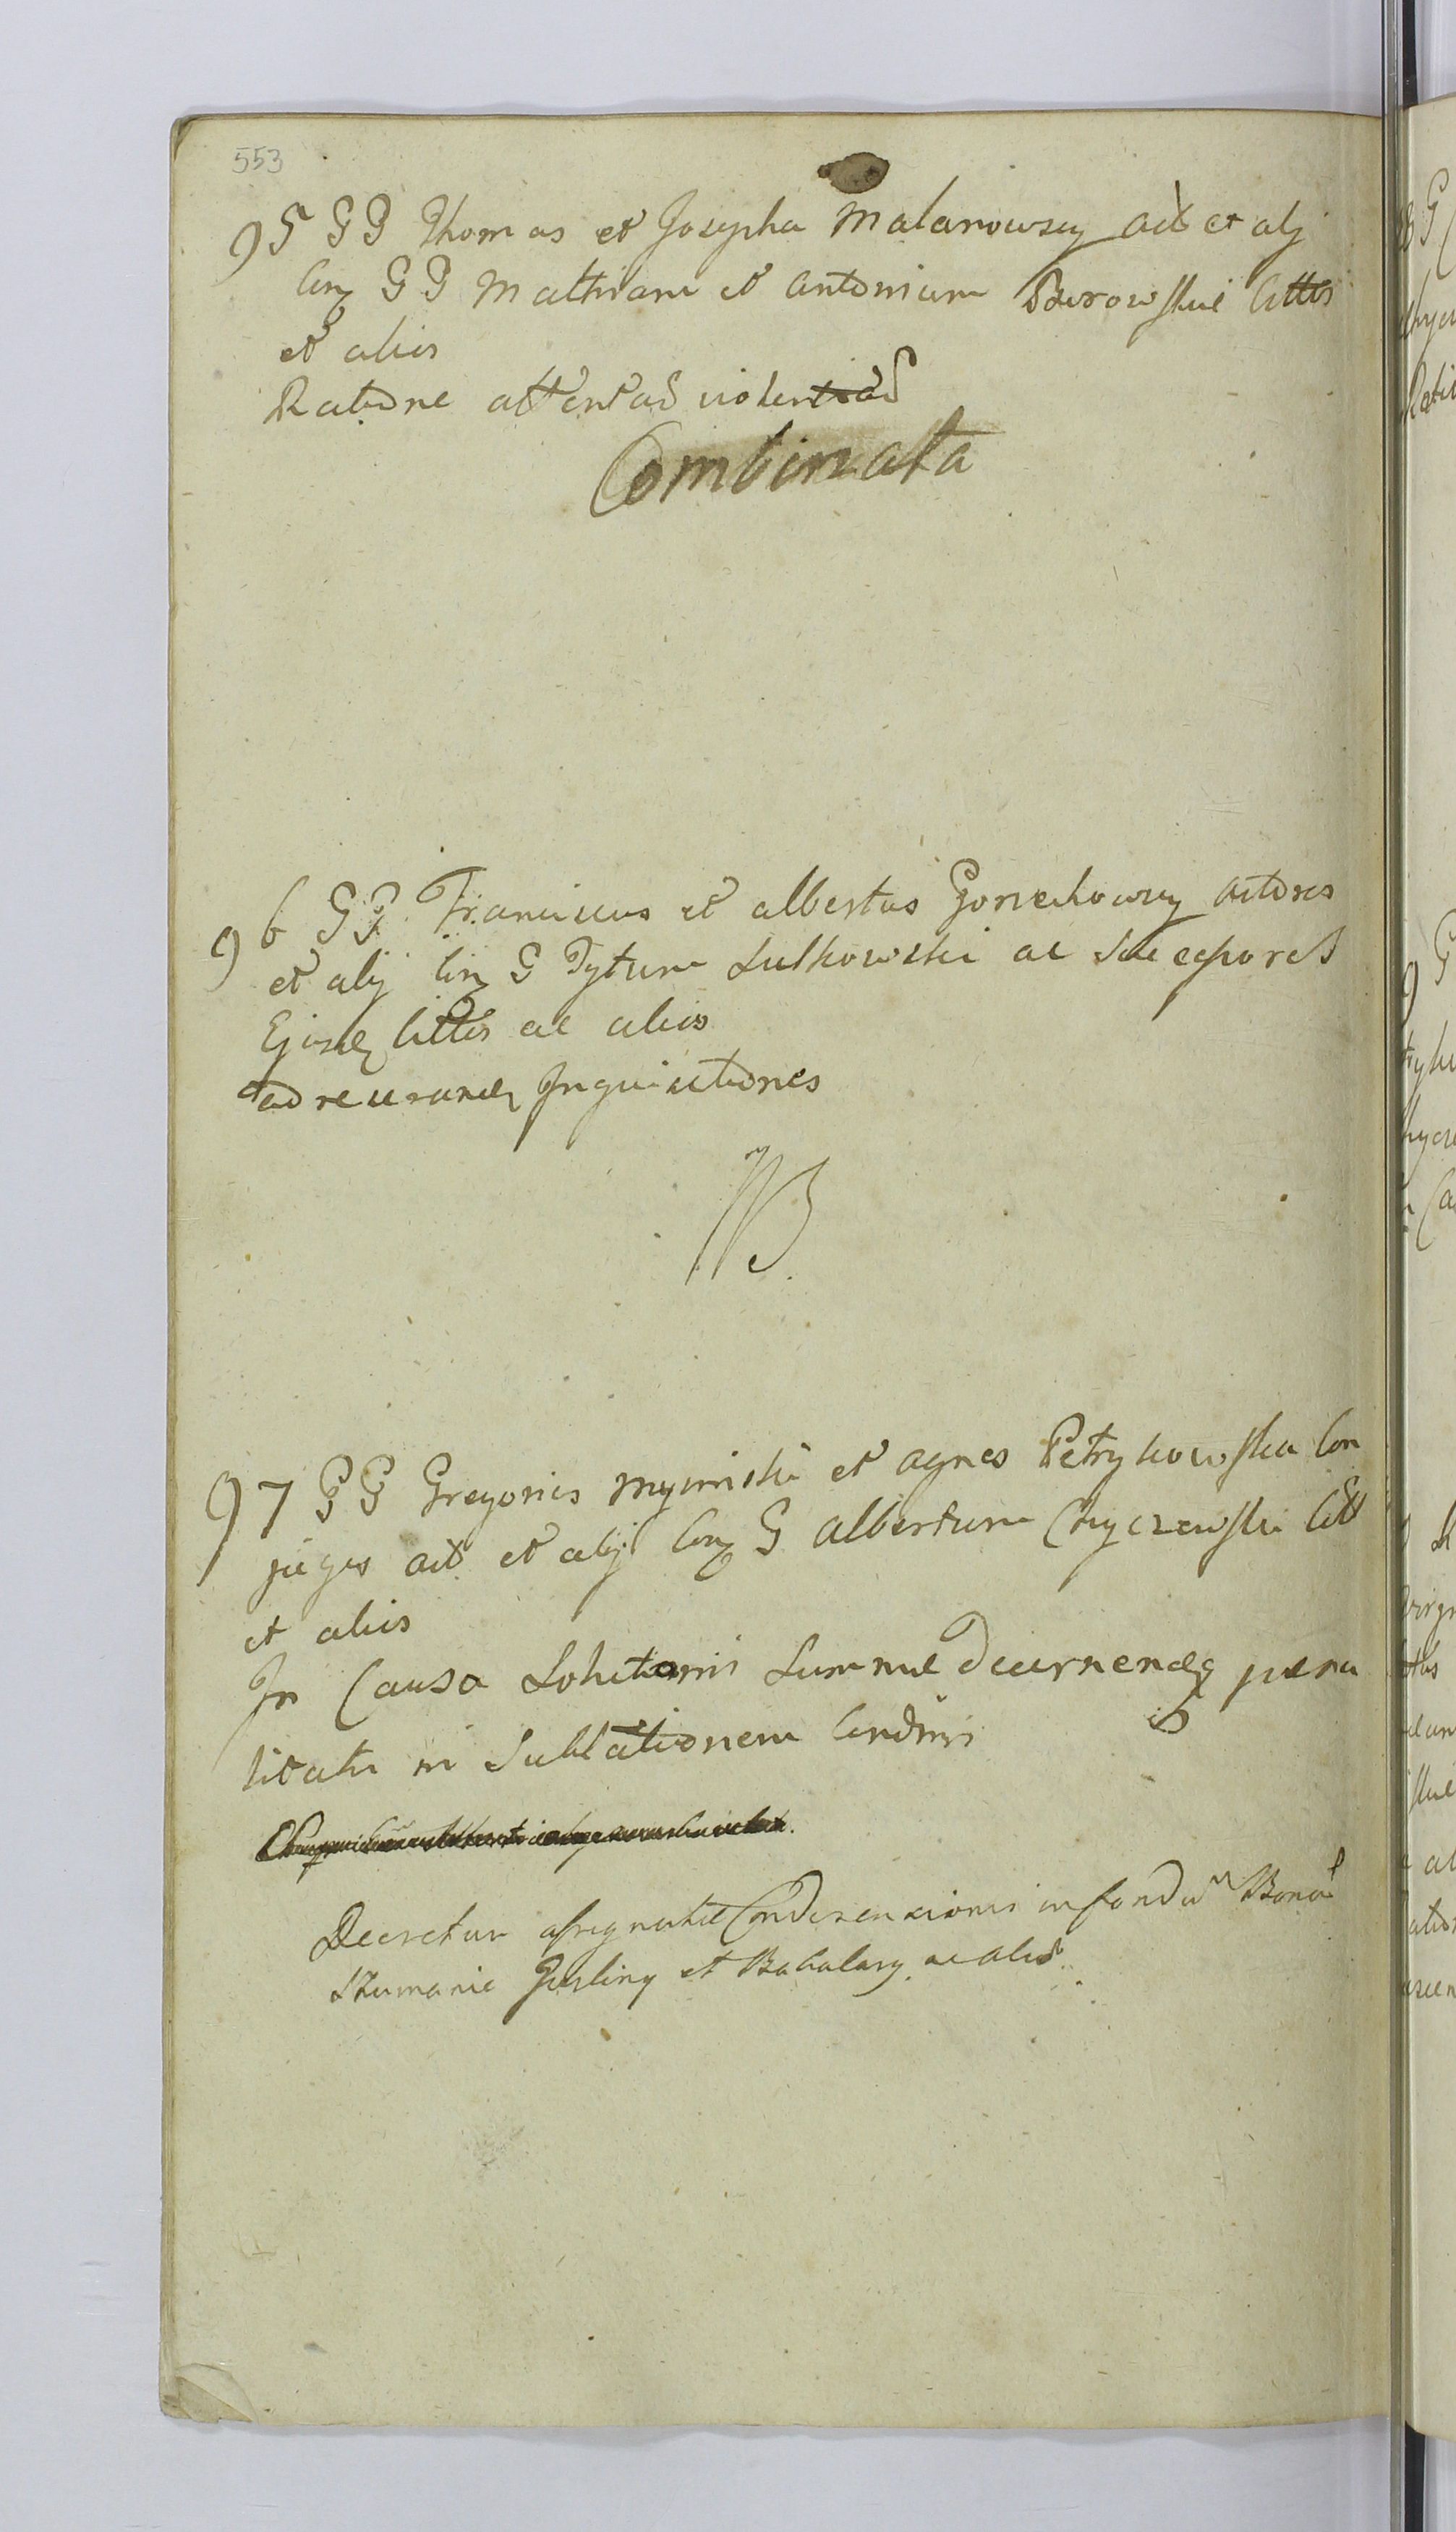 553
95 GG Thomas et Josepha Malanowscy act et alj
Con GG Mathiam et Antonium Burowskie Cittos
et alios
Ratione attentar violentiar
Combinata
96 GG Franciscus et Albertus Gorzechowscy actores
et alij Con G Tytum Sulkowski ac Successores
Ejusd Cittos ac alios
ad recurand Inquisitiones
NB
97 GG Gregorius Mymski et Agnes Petrykowska Con
juges act et alij Con G Albertum Chyczewski Citt
et alios
In Causa Solutionis Summae decernendaeq paena
litatis in Sublationem Condemn
Decretum assignatae Condescensionis in fundum Bonor
Szumanie et Bakalary ac alior